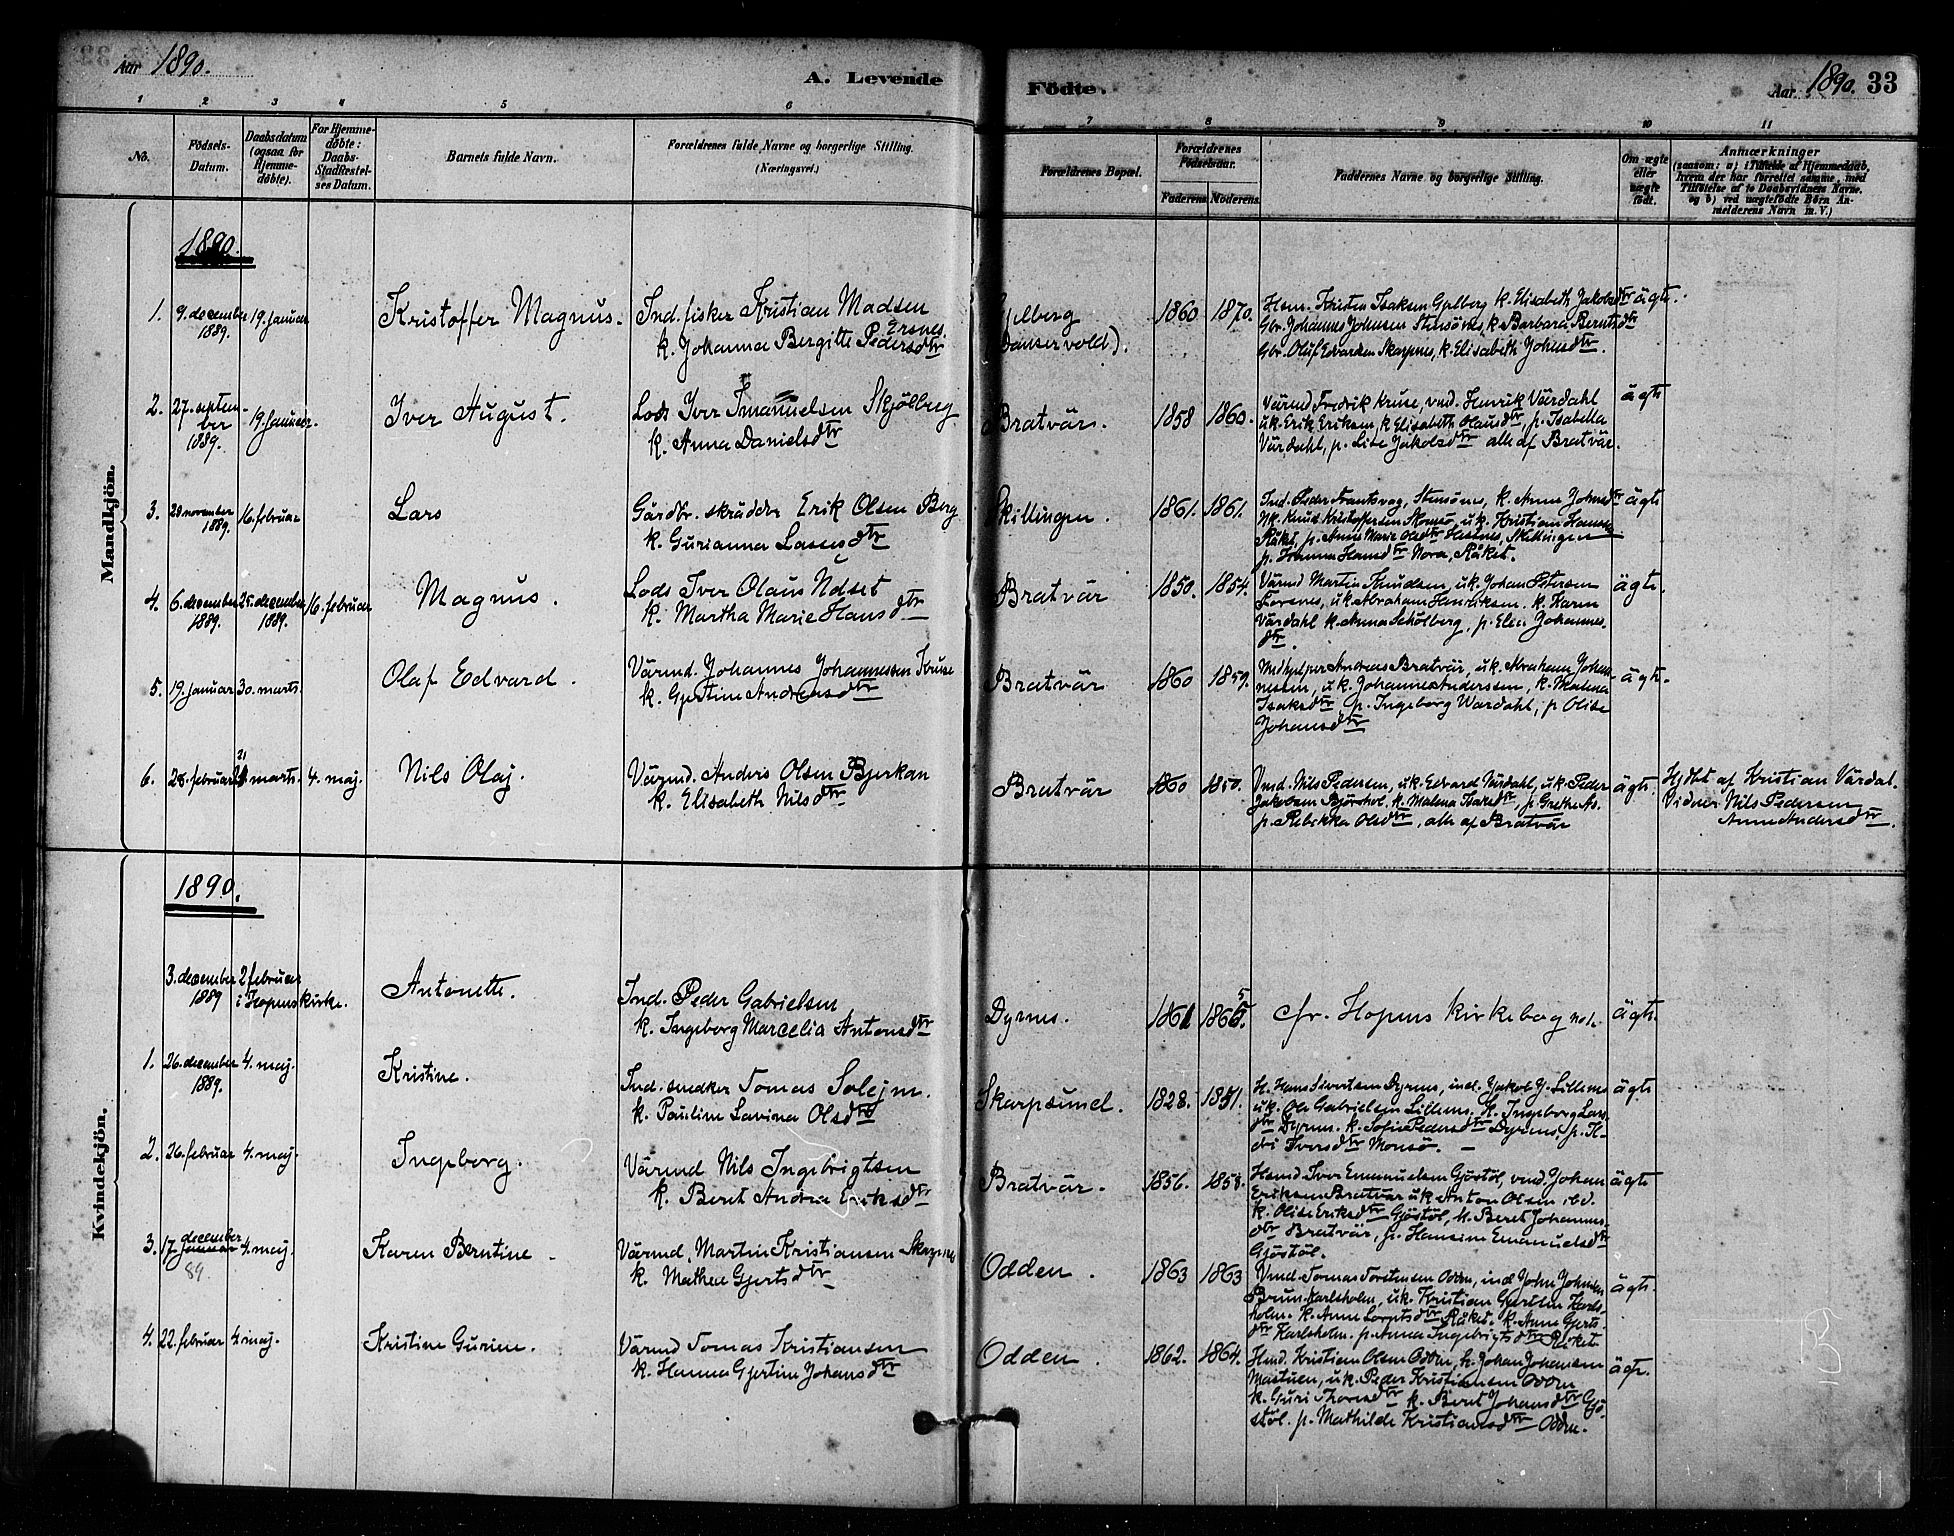 Aar 1890.
A. Levende
Födte.
Aar 1890. 33
1 2 3 4 5 6
7 8 9 10 11
No.
Födsels-
Datum.
Daabsdatum
(ogsaa for
Hjemme-
döbte).
For Hjemme-
döbte:
Daabs-
Stadfæstel-
ses Datum.
Barnets fulde Navn.
Forældrenes fulde Navne og borgerlige Stilling.
(Næringsvei.)
Forældrenes Bopæl.
Forældrenes
Födselsaar.
Faderens Moderens
Faddernes Navne og borgerlige Stilling.
Om ægte
eller
uægte
födt.
Anmærkninger
(saasom: a) i Tilfælde af Hjemmedaab,
hvem der har forrettet samme, med
Tilföielse af to Daabsvidners Navne.
og b) ved uægtefödte Börn An-
melderens Navn m. V.)
Mandkjön.
1890.
1. 9. december 1889. 19. januar Kristoffer Magnus. Ind. fisker Kristian Madsen Ersnes
k. Johanna Bergitte Pedersdtr
Gjelberg 1860 1870. Hsm. Kristen Isaksen Gjelberg k. Elisabeth Jakobsdtr ägte.
Gbr. Johannes Johnsen Stensönes, k. Barbara Berntsdtr
Gbr. Oluf Edvardsen Skarpnes, k. Elisabeth Johnsdtr.
2. 27. septem-
ber
1889. 19. januar. Iver August. Lods Iver Imanuelsen Skjölberg
k. Anna Danielsdtr
Bratvär. 1858 1860. Värmd Fredrik Kruse, vmd. Henrik Värdahl ägte
u.k. Erik Eriksen, k. Elisabeth Olausdtr, p. Isabella
Värdahl, p. Lise Jakobsdtr alle af Bratvär.
3. november 1889. 16. februar Lars Gårdbr. skrädder Erik Olsen Berg
k. Gurianna Larsdtr
Skillingen. 1861. 1861. Ind. Peder Frantsvåg, Stensönes, k. Anne Johnsdtr ägte
k. Knud Kristoffersen Skomsö, u.k. Kristian Hansen
Råket, p. Anne Marie Olsdtr Hestnes, Skillingen
p. Johanna Hansdtr Nora, Råket.
4. 6. december 1889. 25. december 1889. 16. februar Magnus. Lods Iver Olaus Udset
k. Martha Marie Hansdtr
Bratvär 1850. 1854. Värmd Martin Knudsen, u.k. Johan Petersen ägte.
Forsnes, u.k. Abraham Henriksen. k. Karen
Värdahl k. Anna Schölberg, p. Elen Johannes-
dtr.
5. 19. januar 30. marts. Olaf Edvard. Värmd. Johannes Johannessen Kruse
k. Gjertine Andreasdtr
Bratvär 1860 1859. Medhjelper Andreas Bratvär, u.k. Abraham Johan- ägte.
nessen, u.k. Johannes Anderssen, k. Malena
Isaksdtr, p. Ingeborg Wardahl, p. Olise
Johansdtr
6. 28. februar 21 marts. 4. maj. Nils Olaj. Värmd. Anders Olsen Bjerkan
k. Elisabeth Nilsdtr
Bratvär 1860 1850. Vmd. Nils Pedersen, u.k. Edvard Värdahl, u.k. Peder ägte.
Jakobsen Björshol. k. Malena Isaksdtr, p. Grethe As.
p. Rebekka Olsdtr, alle af Bratvär
Hjdbt af Kristian Värdal.
Vidner Nils Pedersen
Anne Andersdtr.
Kvindekjön.
1890.
3. december 1889 2 februar
i Hopens kirke. Antonette. Ind. Peder Gabrielsen
k. Ingeborg Marcelia Antonsdtr
Dyrnes. 1861 1865. cfr. Hopens Kirkebog no 1. ägte.
1. 26. december 1889. 4. maj. Kristine. Ind. snedker Tomas Solejm.
k. Pauline Lavina Olsdtr
Skarpsund. 1828. 1851. H. Hans Sivertsen Dyrnes, ind. Jakob J. Lillenes ägte
u.k. Ole Gabrielsen Lillenes. k. Ingeborg Lars-
dtr Dyrnes. k. Sofie Pedersdtr Dyrnes,
Iversdtr Monsö.
2. 26. februar 4. maj. Ingeborg. Värmd Nils Ingebrigtsen
k. Beret Andrea Eriksdtr
Bratvär. 1856. 1858. Hsmd. Iver Emanuelsen Gjöstöl, vmd. Johan ägte
Eriksen Bratvär u.k. Anton Olsen ibd.
k. Olise Eriksdtr Gjöstöl, k. Beret Johannes-
dtr Bratvär, p. Hansine Emanuelsdtr
Gjöstöl.
3. 17. december
januar
89 4. maj. Karen Berntine Värmd. Martin Kristiansen Skarpnes
k. Mathea Gjertsdtr
Odden. 1863 1863 Vmd. Tomas Torstensen Odden, ind John Johnsen ägte.
Bruun Karlsholm, u.k. Kristian Gjertsen Karls-
holm. k. Anne Lorntsdtr Råket. k. Anne Gjerts-
dtr Karlsholm. p. Anna Ingebrigtsdtr Råket
4. 22. februar 4. maj. Kristine Gurine. Värmd Tomas Kristiansen
k. Hanna Gjertine Johansdtr
Odden. 1862. 1864. Hsmd. Kristian Olsen Odden, h. Johan Johansen ägte.
Mastuen, u.k. Peder Kristiansen Odden
k. Guri Thoresdtr k. Beret Johansdtr Gjö-
stöl. p. Mathilde Kristiansdtr Odden.